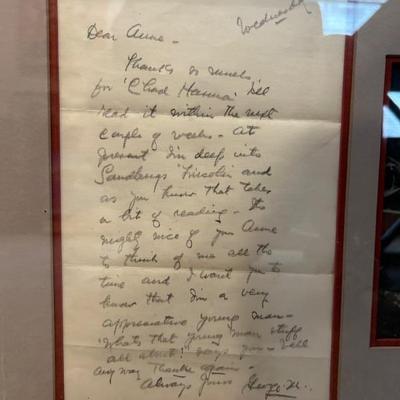 Wednesday
Dear Anne -
Thanks so much
for 'Chad Hanna' I'll
read it within the next
couple of weeks - At
present I'm deep into
Sandburgs 'Lincoln' and
as you know that takes
a bit of reading - Its
mighty nice of you Anne
to think of me all the
time and I want you to
know that I'm a very
appreciative young man -
'Whats that young man stuff
all about' says you - Well
any way Thanks again -
Always yours